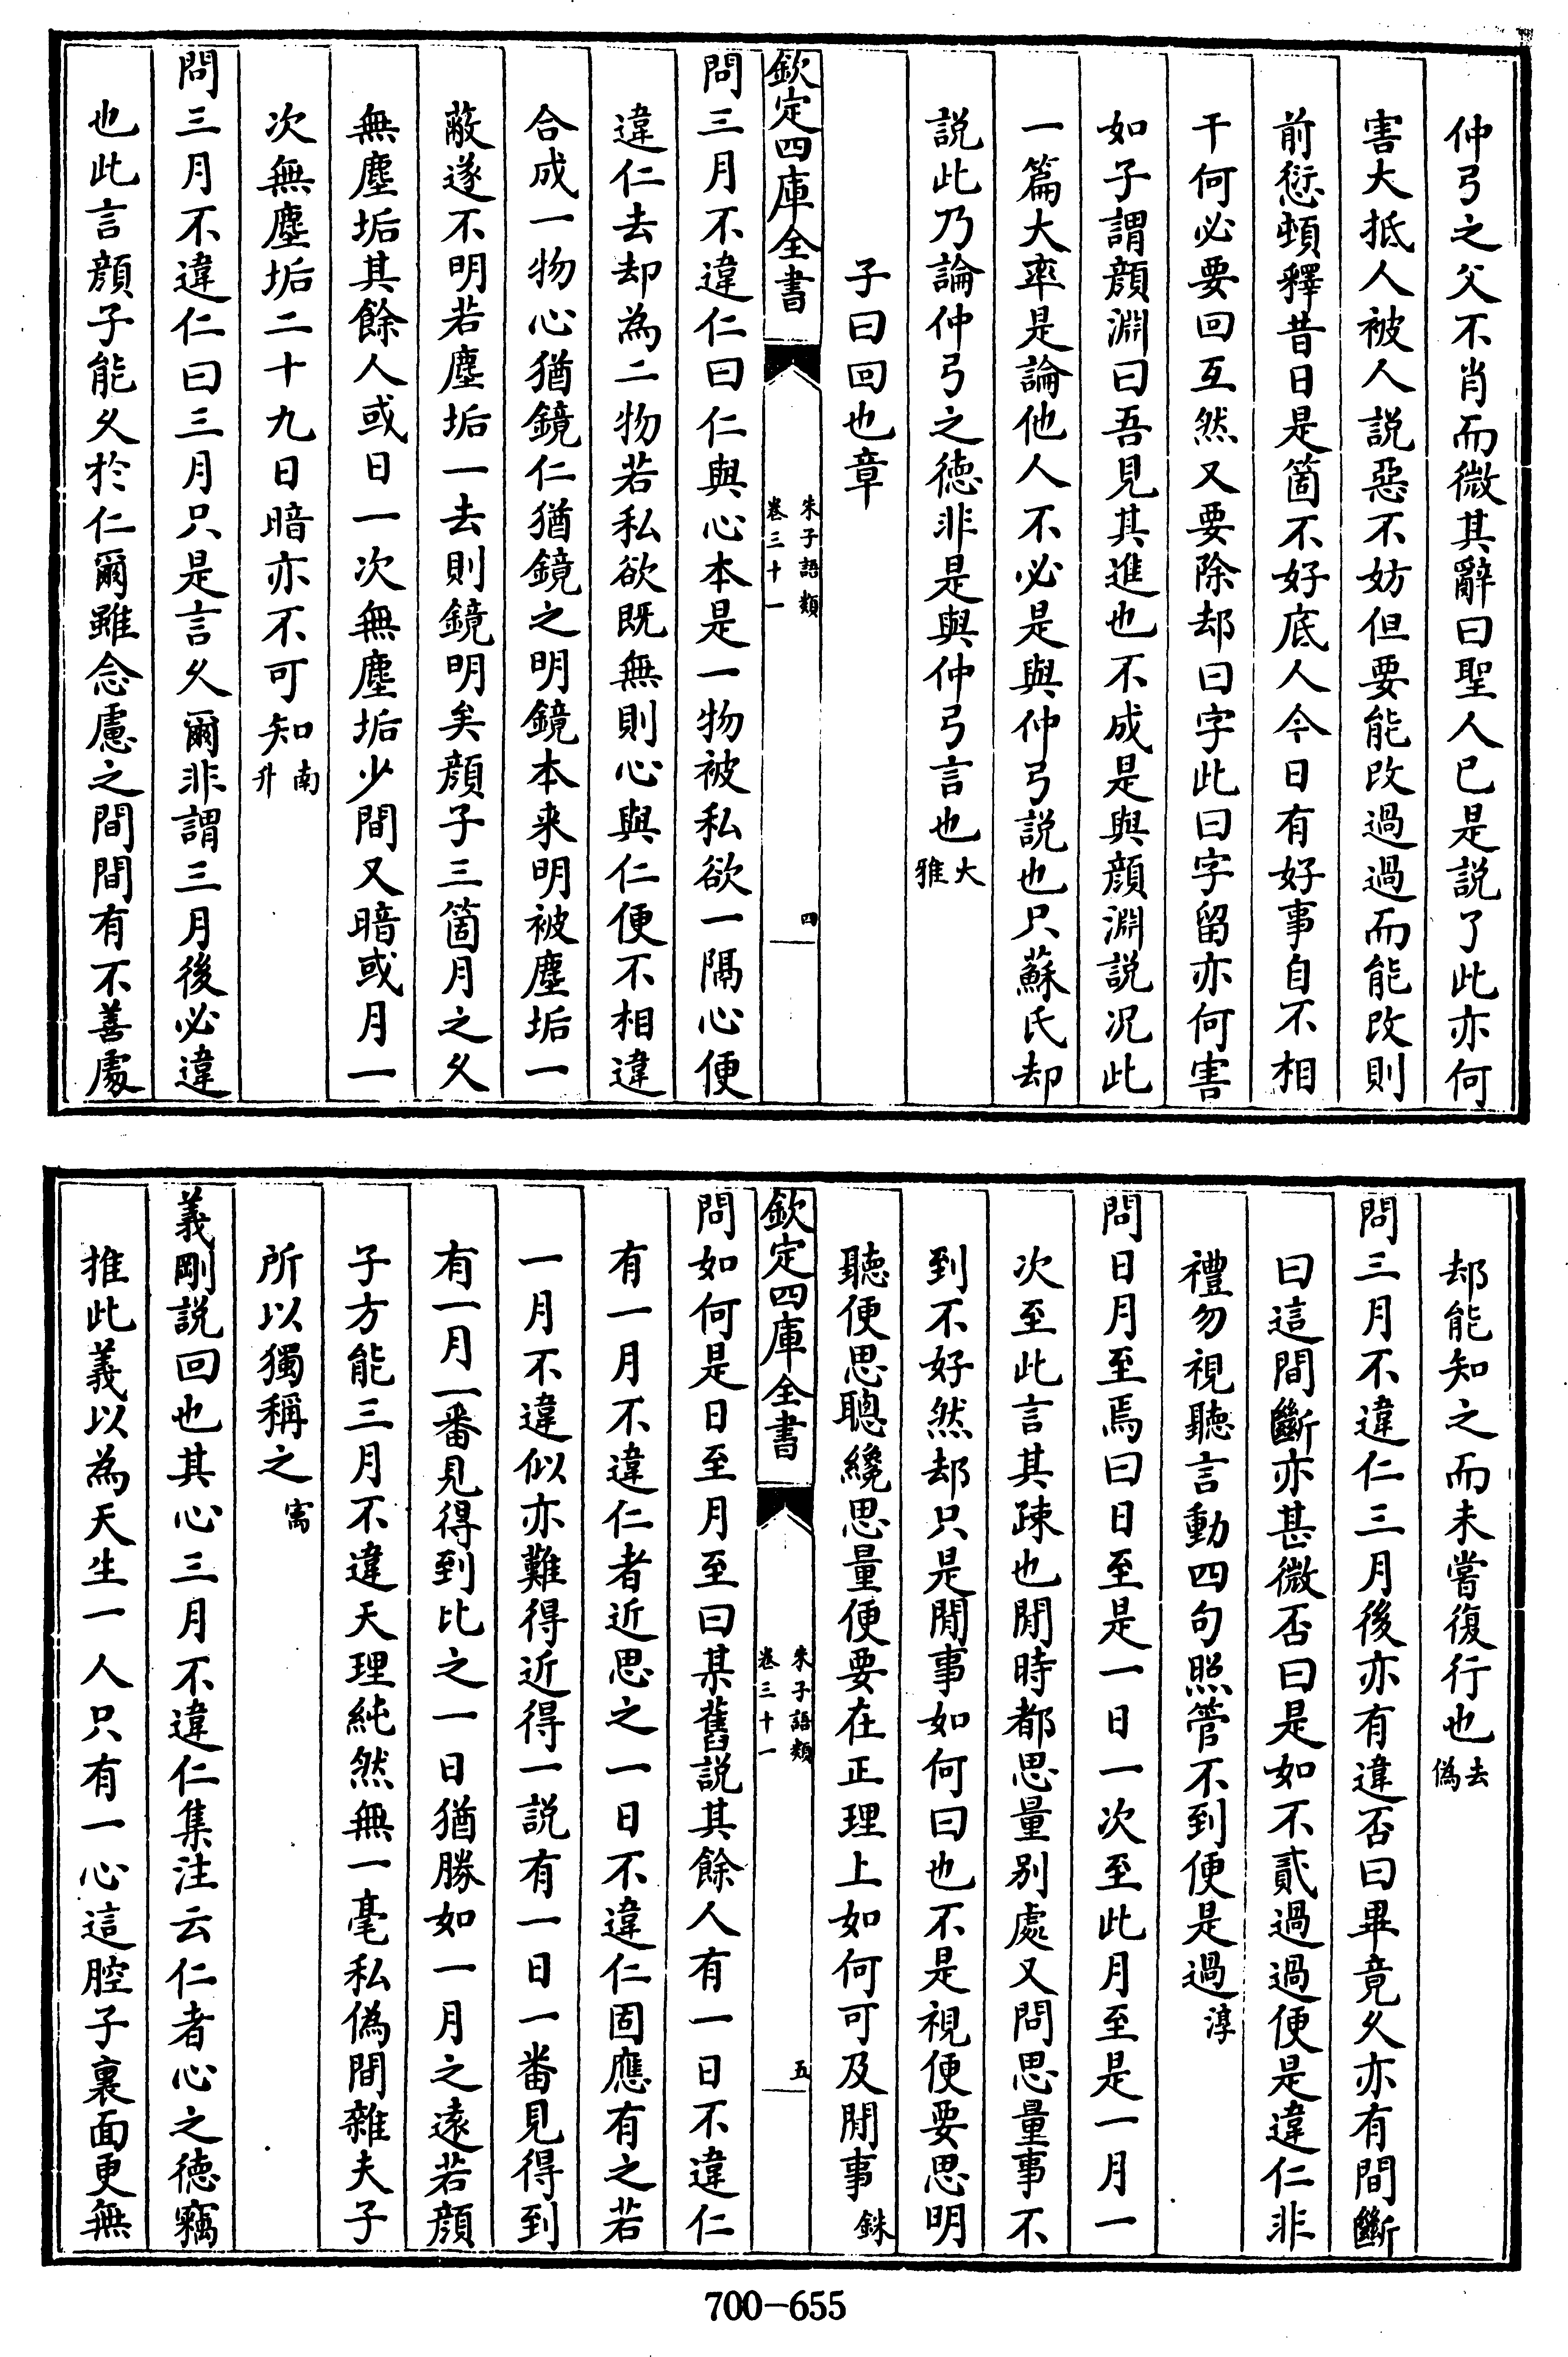 仲弓之父不肖而微其辭曰聖人已是説了此亦何
害大抵人被人説惡不妨但要能改過過而能改則
前愆頓釋昔日是箇不好底人今日有好事自不相
干何必要回互然又要除却曰字此曰字留亦何害
如子謂顔淵曰吾見其進也不成是與顔淵説况此
一篇大率是論他人不必是與仲弓説也只蘇氏却
説此乃論仲弓之徳非是與仲弓言也大雅
子曰回也章
欽定四庫全書 朱子語類 卷三十一 四
問三月不違仁曰仁與心本是一物被私欲一隔心便
違仁去却為二物若私欲既無則心與仁便不相違
合成一物心猶鏡仁猶鏡之明鏡本来明被塵垢一
蔽遂不明若塵垢一去則鏡明矣顔子三箇月之久
無塵垢其餘人或日一次無塵垢少間又暗或月一
次無塵垢二十九日暗亦不可知南升
問三月不違仁曰三月只是言久爾非謂三月後必違
也此言顔子能久於仁爾雖念慮之間間有不善處
却能知之而未嘗復行也去偽
問三月不違仁三月後亦有違否曰畢竟久亦有間斷
曰這間斷亦甚微否曰是如不貳過過便是違仁非
禮勿視聽言動四句照管不到便是過淳
問日月至焉曰日至是一日一次至此月至是一月一
次至此言其疎也閒時都思量别處又問思量事不
到不好然却只是閒事如何曰也不是視便要思明
聽便思聰纔思量便要在正理上如何可及閒事銖
欽定四庫全書 朱子語類 卷三十一 五
問如何是日至月至曰某舊説其餘人有一日不違仁
有一月不違仁者近思之一日不違仁固應有之若
一月不違似亦難得近得一説有一日一番見得到
有一月一番見得到比之一日猶勝如一月之遠若顔
子方能三月不違天理純然無一毫私偽間雜夫子
所以獨稱之㝢
義剛説回也其心三月不違仁集注云仁者心之徳竊
推此義以為天生一人只有一心這腔子裏面更無
700-655